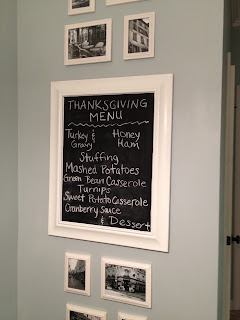 THANKSGIVING
MENU
Turkey & Honey
Gravy Ham
Stuffing
Mashed Potatoes
Green Bean Casserole
Turnips
Sweet Potato Casserole
Cranberry Sauce
& Dessert